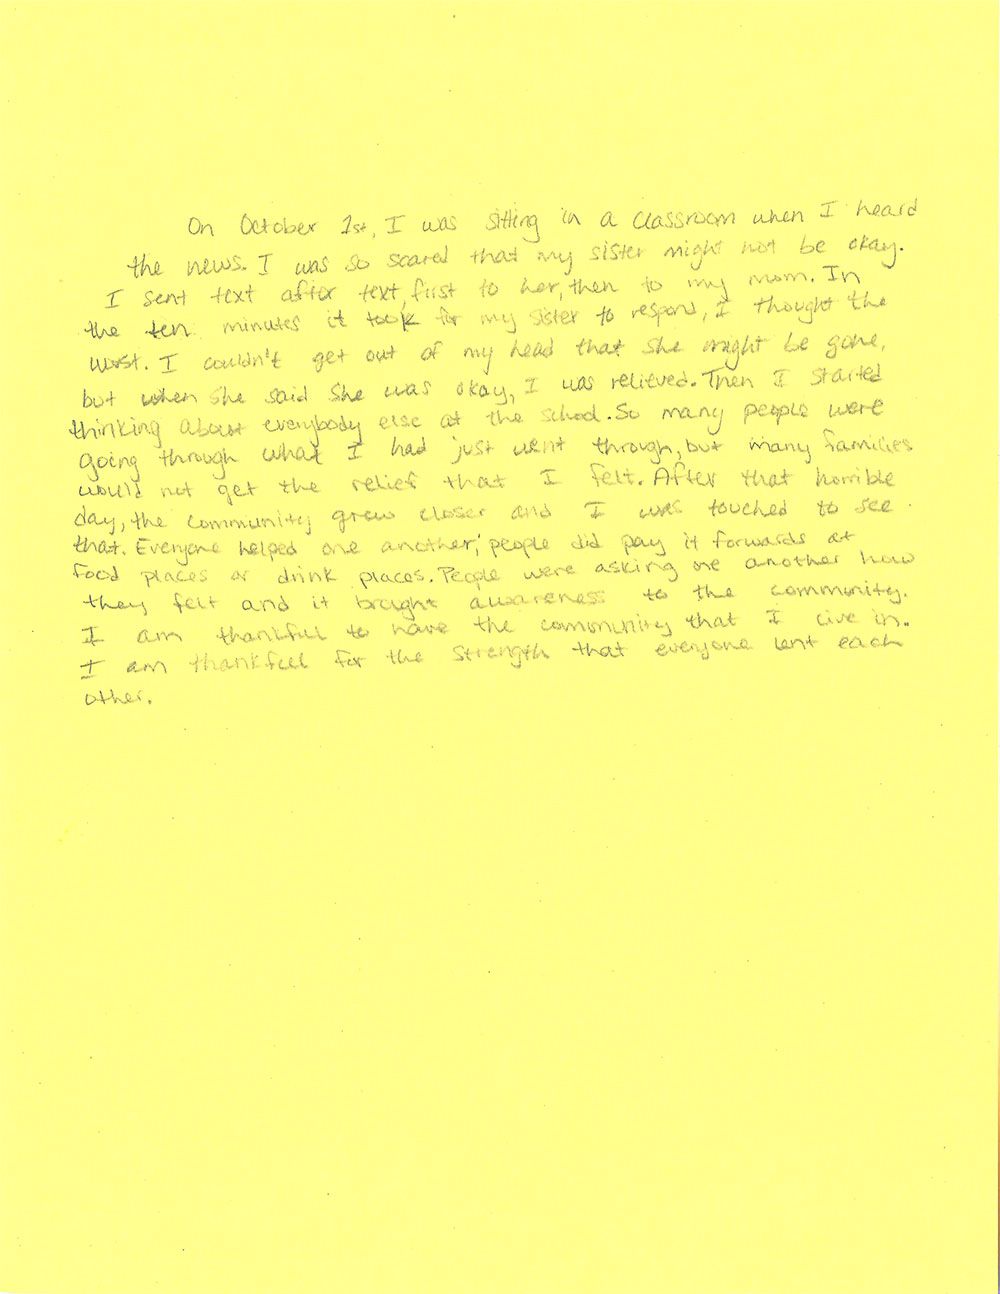 On October 1st, I was sitting in a classroom when I heard
the news. I was so scared that my sister might not be okay.
I sent text after text, first to her, then to my mom. In
the ten minutes it took for my sister to respond, I thought the
worst. I couldn't get out of my head that she might be gone,
but when she said she was okay, I was relieved. Then I started
thinking about everybody else at the school. So many people were
going through what I had just went through, but many families
would not get the relief that I felt. After that horrible
day, the community grew closer and I was touched to see
that. Everyone helped one another; people did pay it forwards at
food places or drink places. People were asking one another how
they felt and it brought awareness to the community.
I am thankful to have the community that I live in.
I am thankful for the strength that everyone lent each
other.